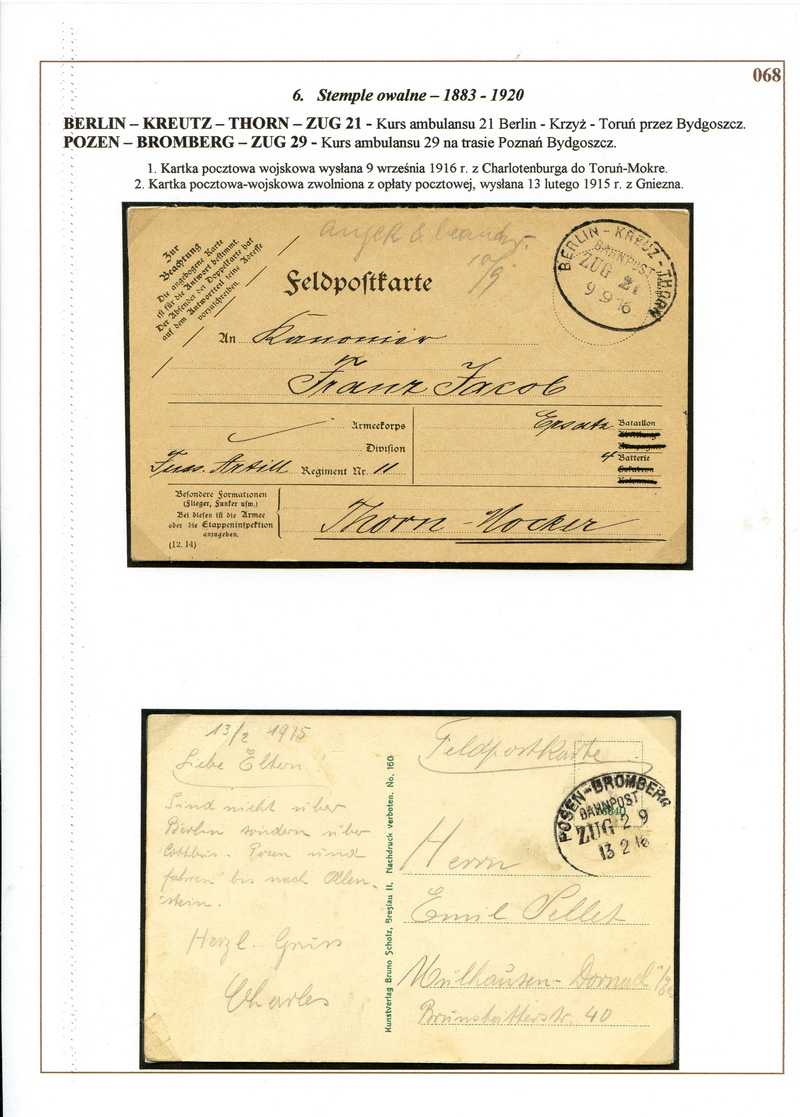 068
6. Stemple owalne – 1883 - 1920
BERLIN – KREUTZ – THORN – ZUG 21 - Kurs ambulansu 21 Berlin - Krzyż - Toruń przez Bydgoszcz.
POZEN – BROMBERG – ZUG 29 - Kurs ambulansu 29 na trasie Poznań Bydgoszcz.
1. Kartka pocztowa wojskowa wysłana 9 września 1916 r. z Charlotenburga do Toruń-Mokre.
2. Kartka pocztowa-wojskowa zwolniona z opłaty pocztowej, wysłana 13 lutego 1915 r. z Gniezna.
Zur
Beachtung
Die angebogene Karte
ist für die Antwort bestimmt.
Der Absender der Doppelkarte hat
auf dem Antwortteil seine Adresse
vorzuschreiben.
10/9
Feldpostkarte
BERLIN - KREUZ - THORN
BAHNPOST
ZUG 21
9 9 16
An Kanonier
Franz Jacob
Armeekorps
Division
Fuss. Artill Regiment Nr. 11
Ersatz Bataillon
4 Batterie
Besondere Formationen
(Flieger, Funker usw.)
Bei diesen ist die Armee
oder die Etappeninspektion
anzugeben.
(12. 14)
Thorn - Mocker
13/2 1915
Liebe Eltern!
Sind nicht über
Berlin sondern über
Cottbus - Posen und
fahren bis nach Allen-
stein.
Herzl. Gruss
Charles
Kunstverlag Bruno Scholz, Breslau II. Nachdruck verboten. No. 160
Feldpostkarte
POSEN-BROMBERG
BAHNPOST
ZUG 29
13 2 15
Herrn
Emil Pellet
Mülhausen - Dornach
Brunstatterstr. 40